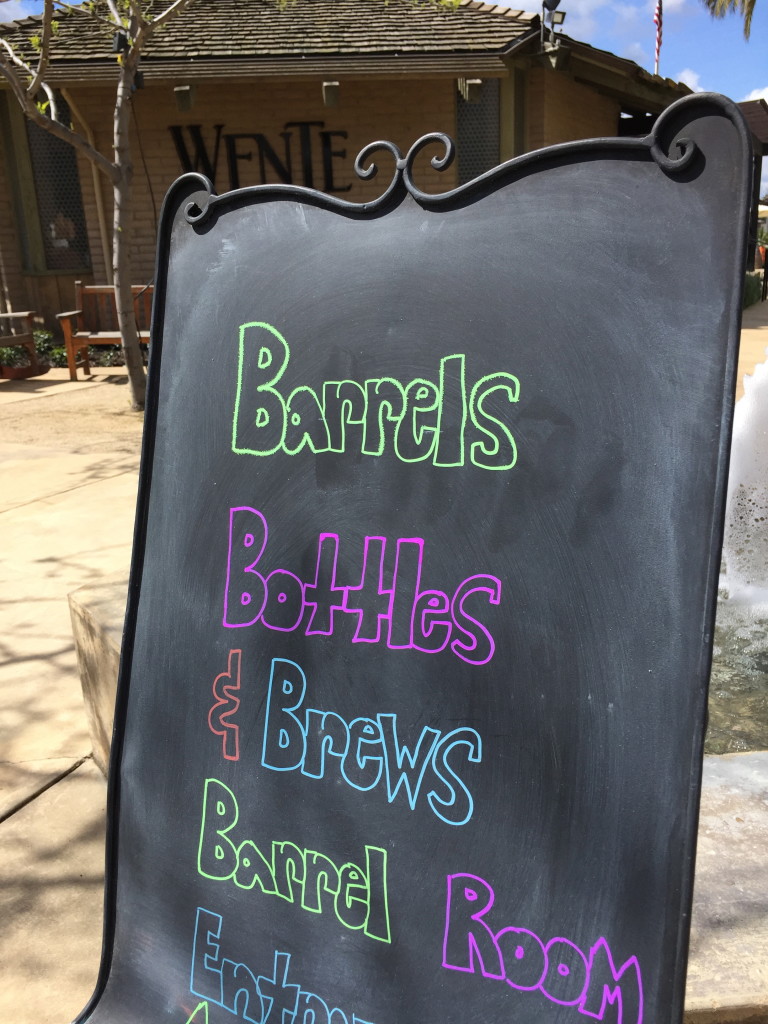 WENTE
Barrels
Bottles
& Brews
Barrel Room